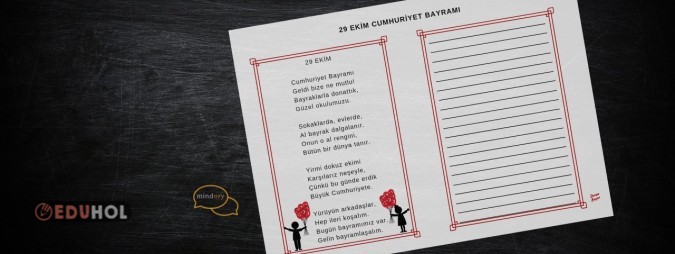 29 EKİM CUMHURİYET BAYRAMI
29 EKİM
Cumhuriyet Bayramı
Geldi bize ne mutlu!
Bayraklarla donattık,
Güzel okulumuzu.
Sokaklarda, evlerde,
Al bayrak dalgalanır.
Onun o al rengini,
Bütün bir dünya tanır.
Yirmi dokuz ekimi
Karşılarız neşeyle,
Çünkü bu günde erdik
Büyük Cumhuriyete.
Yürüyün arkadaşlar,
Hep ileri koşalım.
Bugün bayramımız var.
Gelin bayramlaşalım.
EDUHOL
mindory